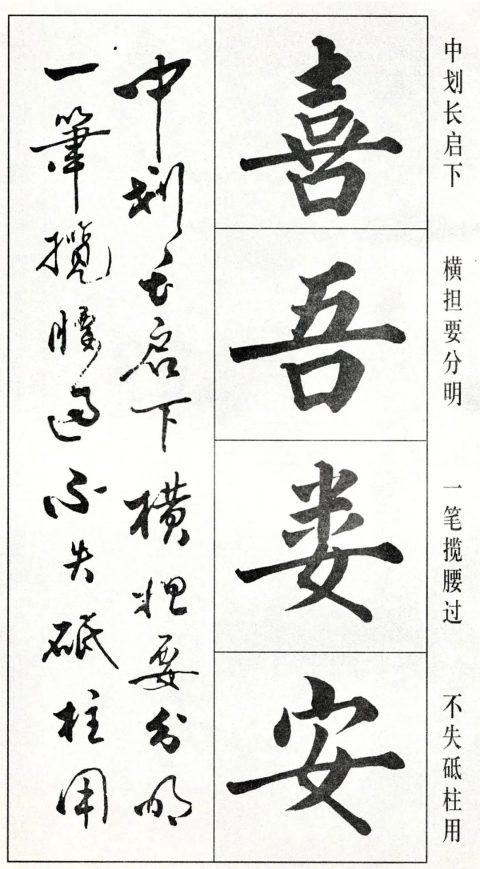 中划长启下
横担要分明
一笔揽腰过
不失砥柱用
喜
吾
娄
安
中划长启下横担要分明
一筆攬腰過不失砥柱用